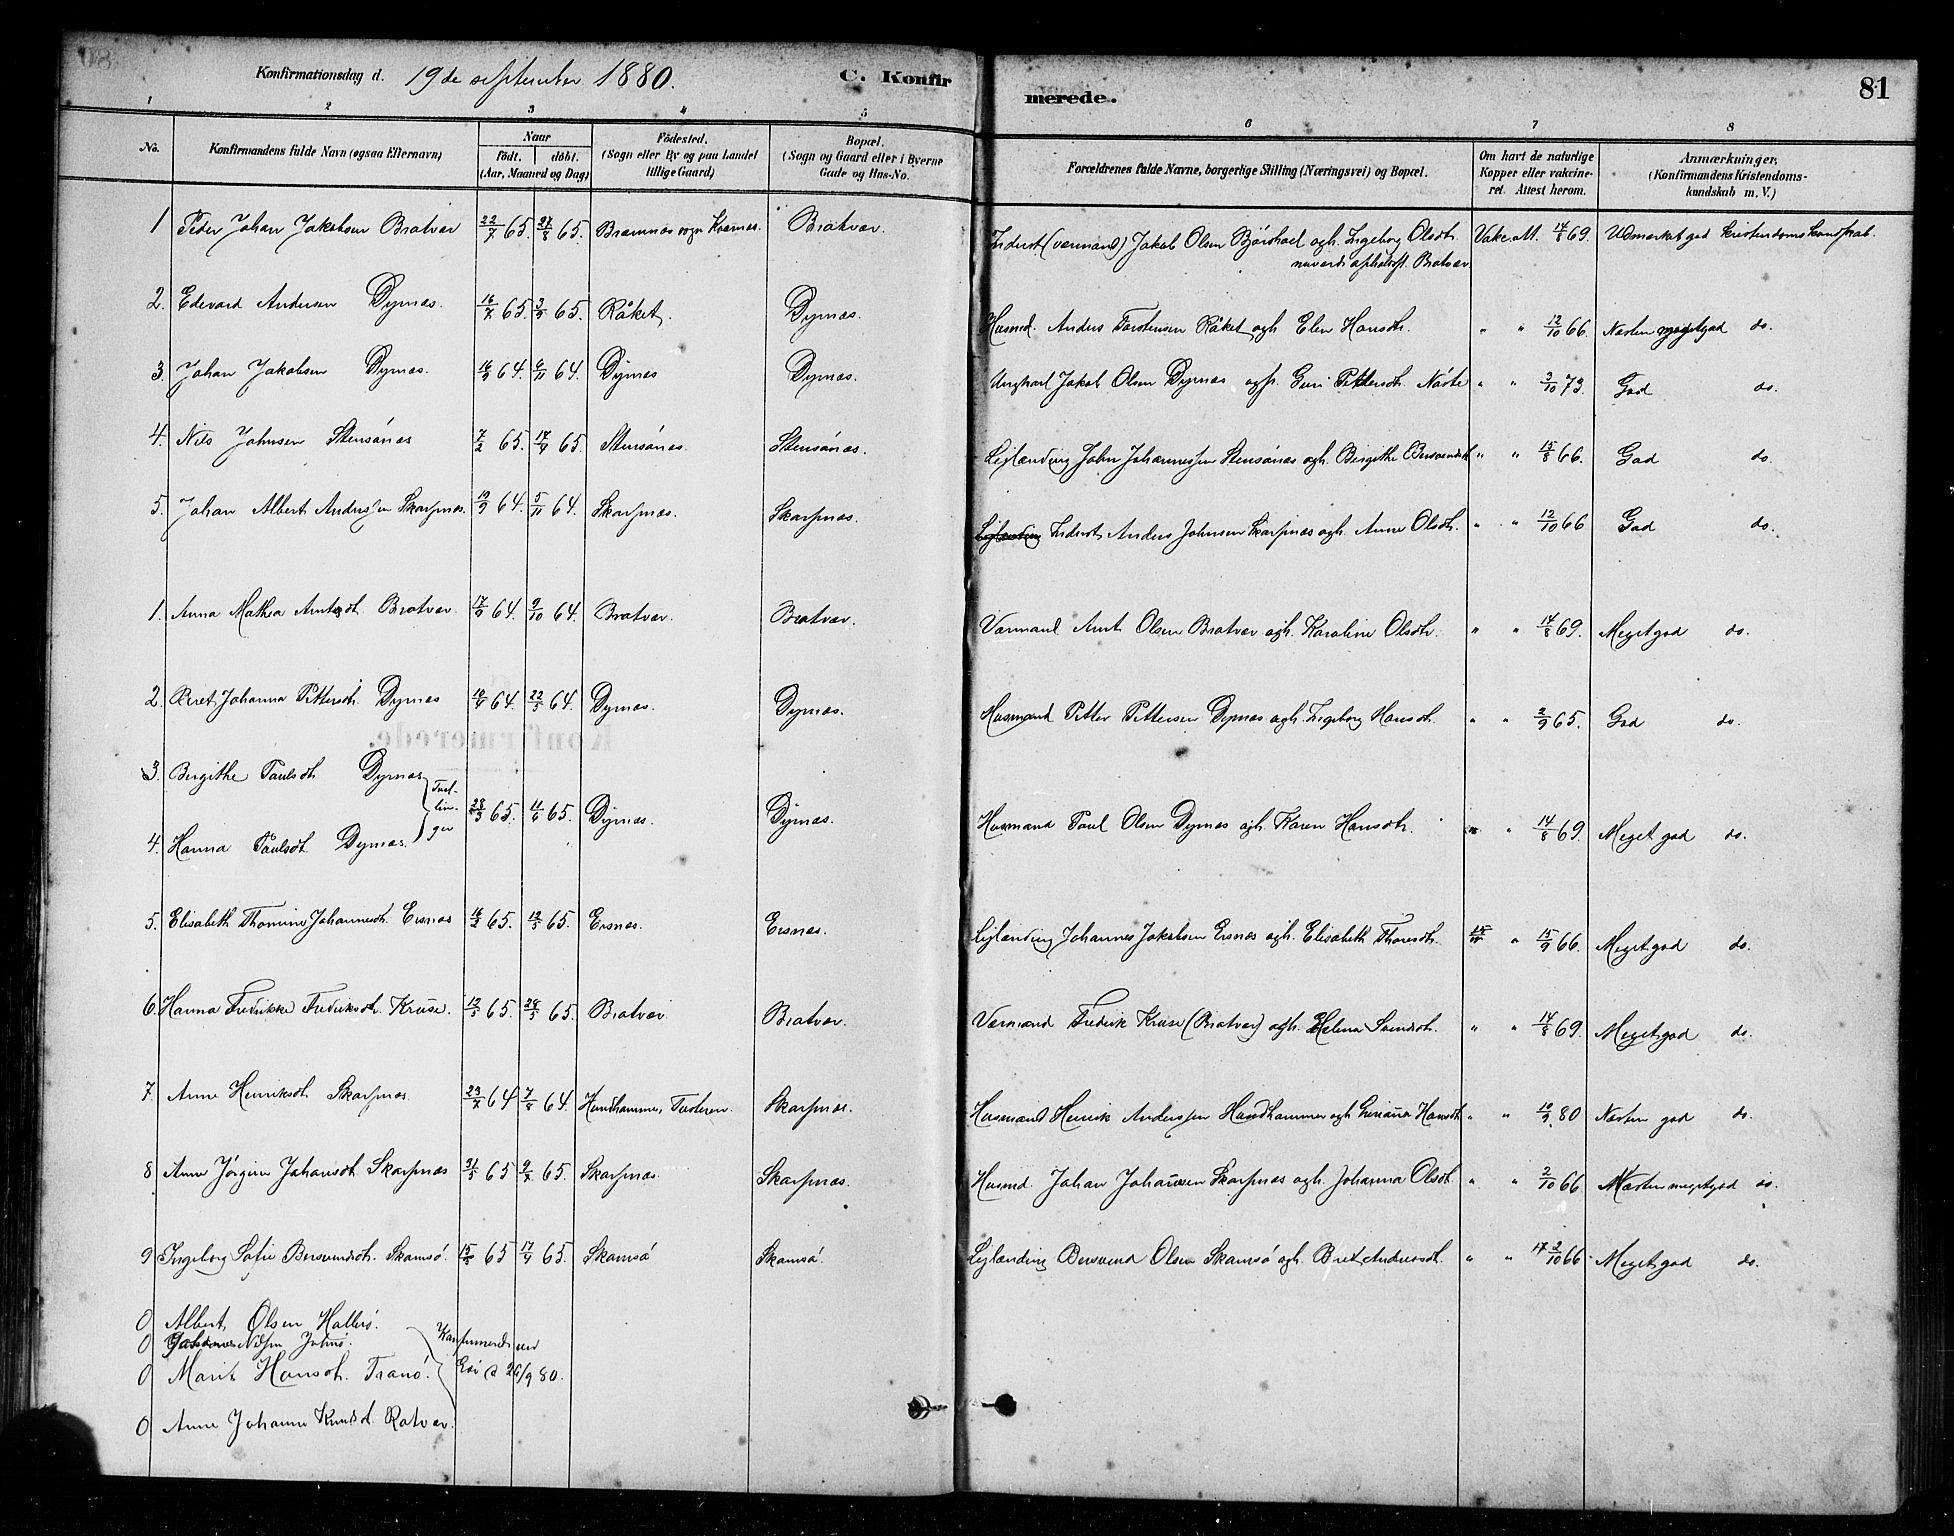 Konfirmationsdag d. 19de september 1880. C. Konfirmerede. 81
1 2 3 4 5 6 7 8
No. Konfirmandens fulde Navn (ogsaa Efternavn) Naar födt. döbt. (Aar, Maaned og Dag) Födested. (Sogn eller By og paa Landet tillige Gaard) Bopæl. (Sogn og Gaard eller i Byerne Gade og Hus-No. Forældrenes fulde Navne, borgerlige Stilling (Næringsvei) og Bopæl. Om havt de naturlige Kopper eller vakcineret. Attest herom. Anmærkninger, (Konfirmandens Kristendomskundskab m. V.)
1 Peder Johan Jakobsen Bratvær 22/7 65. 27/8 65. Bremnæs sogn Bratvær. Inderst (værmand) Jakob Olsen agh. Ingeborg Olsdtr. Vakc. att. 14/8 69. Udmærket god kristendomskundskab.
Bratvær
2. Edevard Andersen Dyrnæs. 16/7 65. 3/9 65. Råket. Dyrnæs. Husmd. Anders Torstensen Råket agh Elen Hansdtr. " " 12/10 66. Næsten megetgod do.
3. Johan Jakobsen Dyrnæs. 16/9 64. 6/11 64. Dyrnæs Dyrnæs. Ungkarl Jakob Olsen Dyrnæs agh. Guri Pettersdtr. Nåste " " 3/10 73. God do.
4. Nils Johnsen Stensönæs 7/2 65. 17/4 65. Stensönæs. Stensönæs. Leilænding John Johannessen Stensönæs agh. Bergithe Bersvendsdt " " 15/8 66. God do.
5. Johan Albert Anderssen Skarpnæs. 19/9 64. 5/11 64. Skarpnæs. Skarpnæs. Leilænding Inderst Anders Johnsen Skarpnæs agh. Anne Olsdtr. " " 12/10 66 God do.
1. Anna Mathea Arntsdt. Bratvær 17/9 64. 9/10 64. Bratvær. Bratvær. Værmand Arnt Olsen Bratvær agh. Karoline Olsdtr. " " 14/8 69. Megetgod do.
2. Beret Johanna Pettersdt. Dyrnæs 10/4 64. 22/5 64. Dyrnæs. Dyrnæs. Husmand Petter Pettersen Dyrnæs agh. Ingeborg Hansdt. " " 2/9 65. God do.
3. Bergithe Paulsdt. Dyrnæs
Tvillinger 28/3 65. 4/6 65. Dyrnæs. Dyrnæs. Husmand Paul Olsen Dyrnæs agh. Karen Hansdtr. " " 14/8 69. Meget god do.
4. Hanna Paulsdt. Dyrnæs.
5. Elisabeth Thomine Johannesdt. Ersnæs 16/2 65. 12/3 65. Ersnæs. Ersnæs. Leilænding Johannes Jakobsen Ersnæs agh. Elisabeth Thoresdt. " 15/9 66. Megetgod do.
6. Hanna Fredrikke Fredriksdt. Kruse. 12/3 65. 28/5 65. Bratvær Bratvær. Værmand Fredrik Kruse (Bratvær) agh. Helena Svendsdt. " " 14/8 69. Megetgod do.
7. Anne Henriksdt Skarpnæs 23/7 64 7/8 64. Hundhammer, Tusteren. Skarpnæs. Husmand Henrik Anderssen Hundhammer agh Hansdt " " 10/9 80 Næsten god do.
8 Anne Jörgine Johansdt. Skarpnæs 31/5 65 9/7 65. Skarpnæs. Skarpnæs. Husmd. Johan Johansen Skarpnæs agh. Johanna Olsdt " " 2/10 66 Næsten megetgod do.
9 Ingeborg Sofie Bersvendsdt. Skamsö. 65 17/4 65. Skamsö Skamsö. Leilænding Bersvend Olsen Skamsö agh. Beret Andersdt. " " 2/10 66 Megetgod do.
0 Albert Olsen
0 Nilsen
Konfirmerede ved
0 Marit Hansdt. Tranö.
Edö d 26/9 80.
0 Anne Johanne Knutsd. Ratvær.